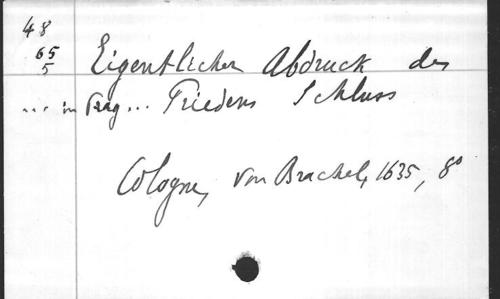 48
65
5
Eigentlicher Abdruck des
... in Prag... Friedens Schluss
Cologne, von Brachel, 1635, 8°